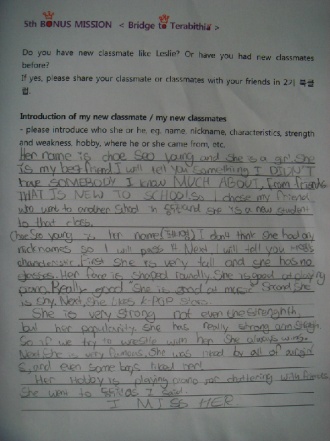 5th BONUS MISSION < Bridge to Terabithia >
Do you have new classmate like Leslie? Or have you had new classmates
before?
If yes, please share your classmate or classmates with your friends in 2기 북클
럽.
Introduction of my new classmate / my new classmates
- please introduce who she or he, eg. name, nickname, characteristics, strength
and weakness, hobby, where he or she came from, etc.
Her name is choe Seo young and she is a girl. She
is my best friend. I will tell you something I DIDN'T
have SOMEBODY I know MUCH ABOUT, from friends
THAT IS NEW TO SCHOOL. So I chose my friend
who went to another School in and she is a new student
to that class.
Seo young is her name I don't think she had any
nicknames so I will press it. Next I will tell you
character. First she is very tall and she has no
glasses. Her face is shaped roundly. She is good at playing
piano. Really good. She is good at music. Second she
is shy. Next, she likes k-pop stars.
She is very strong not even the strength,
but her popularity. She has really strong arm strength.
So if we try to wrestle with her she always wins.
Next she is very famous. She was liked by all of girls
and even some boys liked her.
Her Hobby is playing piano for chattering with friends.
She went to I said.
I MISS HER